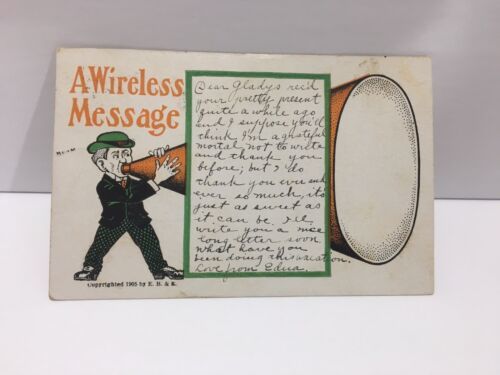 A Wireless
Message
Dear Gladys rec'd
your pretty present
quite a while ago
and I suppose you'd
think I'm a grateful
mortal not to write
and thank you
before, but I do
thank you ever and
ever so much, it's
just as sweet as
it can be. I'll
write you a nice
long letter soon.
What have you
been doing this vacation.
Love from Edna.
Copyrighted 1905 by E. B. & E.